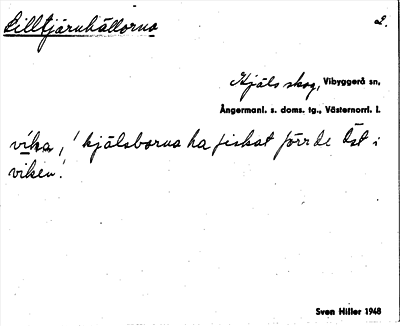 Lilltjärnhällorna 2.
Kjäls skog, Vibyggerå sn,
Ångermanl. s. doms. tg., Västernorrl. l.
vika, 'kjälsborna ha fiskat förr de öst i
viken.'
Sven Hiller 1948